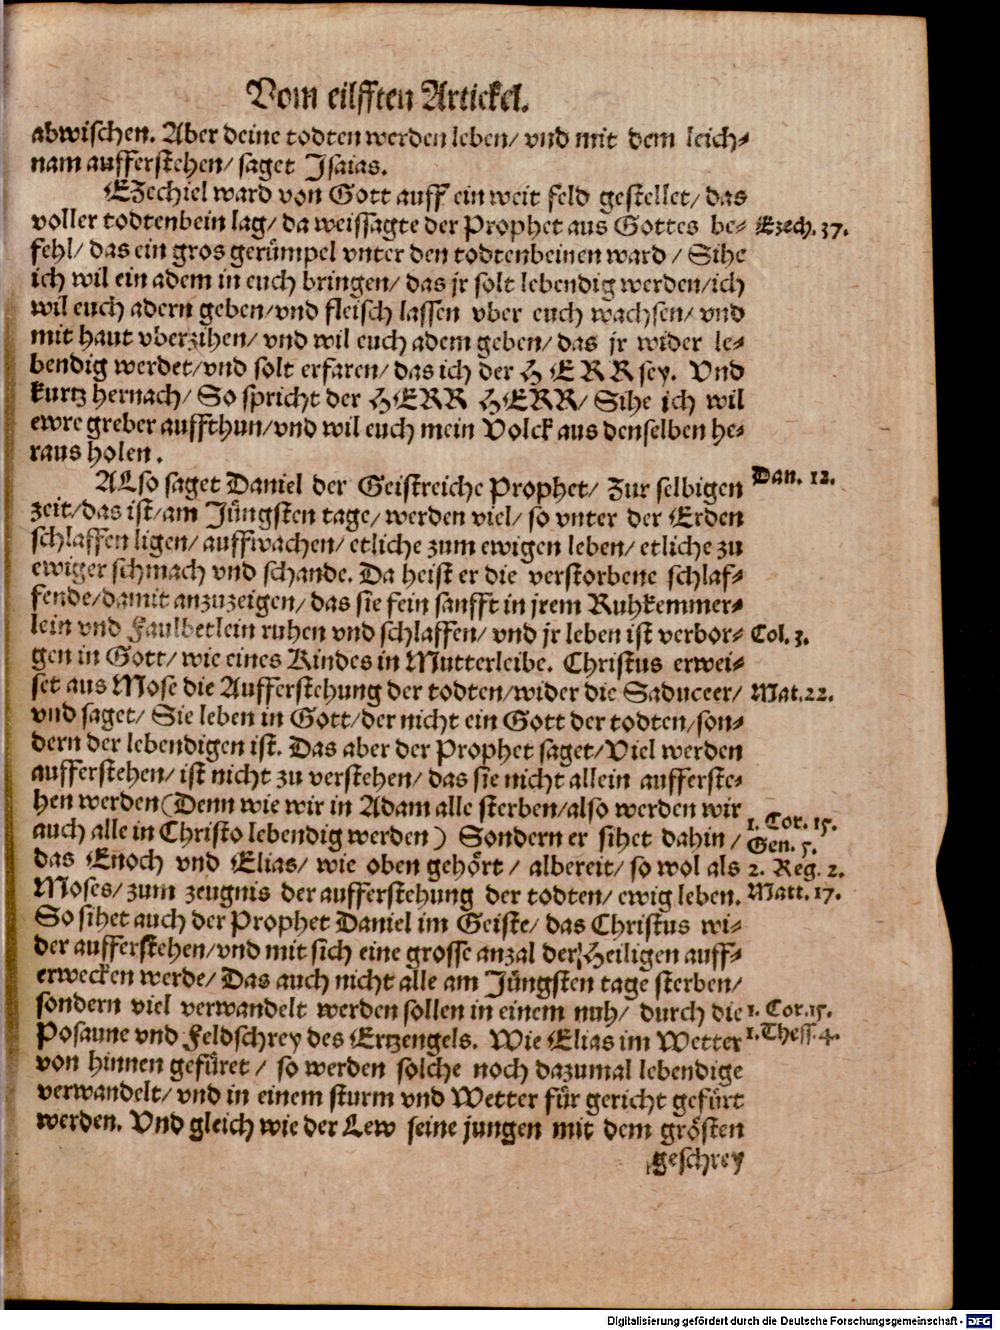 Vom eilfften Artickel.
abwischen. Aber deine todten werden leben/ vnd mit dem leich-
nam aufferstehen/ saget Isaias.
EZechiel ward von Gott auff ein weit feld gestellet/ das
voller todtenbein lag/ da weissagte der Prophet aus Gottes be- Ezech. 37.
fehl/ das ein gros gerümpel vnter den todtenbeinen ward / Sihe
ich wil ein adem in euch bringen/ das jr solt lebendig werden/ich
wil euch adern geben/vnd fleisch lassen vber euch wachsen/ vnd
mit haut vberzihen/ vnd wil euch adem geben/ das jr wider le-
bendig werdet/vnd solt erfaren/ das ich der HERR sey. Vnd
kurtz hernach/ So spricht der HERR HERR/ Sihe ich wil
ewre greber auffthun/vnd wil euch mein Volck aus denselben he-
raus holen.
ALso saget Daniel der Geistreiche Prophet/ Zur selbigen Dan. 12.
zeit/das ist/am Jüngsten tage/ werden viel/ so vnter der Erden
schlaffen ligen/ auffwachen/ etliche zum ewigen leben/ etliche zu
ewiger schmach vnd schande. Da heist er die verstorbene schlaf-
fende/damit anzuzeigen/ das sie fein sanfft in jrem Ruhkemmer-
lein vnd Faulbetlein ruhen vnd schlaffen/ vnd jr leben ist verbor- Col. 3.
gen in Gott/ wie eines Kindes in Mutterleibe. Christus erwei-
set aus Mose die Aufferstehung der todten/wider die Saduceer/ Mat. 22.
vnd saget/ Sie leben in Gott/der nicht ein Gott der todten/son-
dern der lebendigen ist. Das aber der Prophet saget/Viel werden
aufferstehen/ ist nicht zu verstehen/ das sie nicht allein aufferste-
hen werden (Denn wie wir in Adam alle sterben/also werden wir
auch alle in Christo lebendig werden) Sondern er sihet dahin / 1. Cor. 15.
Gen. 5.
das Enoch vnd Elias/ wie oben gehört / albereit/ so wol als 2. Reg. 2.
Moses/ zum zeugnis der aufferstehung der todten/ ewig leben. Matt. 17.
So sihet auch der Prophet Daniel im Geiste/ das Christus wi-
der aufferstehen/vnd mit sich eine grosse anzal der Heiligen auff-
erwecken werde/ Das auch nicht alle am Jüngsten tage sterben/
sondern viel verwandelt werden sollen in einem nuh/ durch die 1. Cor. 15.
Posaune vnd Feldschrey des Ertzengels. Wie Elias im Wetter 1. Thess. 4.
von hinnen gefüret / so werden solche noch dazumal lebendige
verwandelt/ vnd in einem sturm vnd Wetter für gericht gefürt
werden. Vnd gleich wie der Lew seine jungen mit dem grösten
geschrey
Digitalisierung gefördert durch die Deutsche Forschungsgemeinschaft - DFG